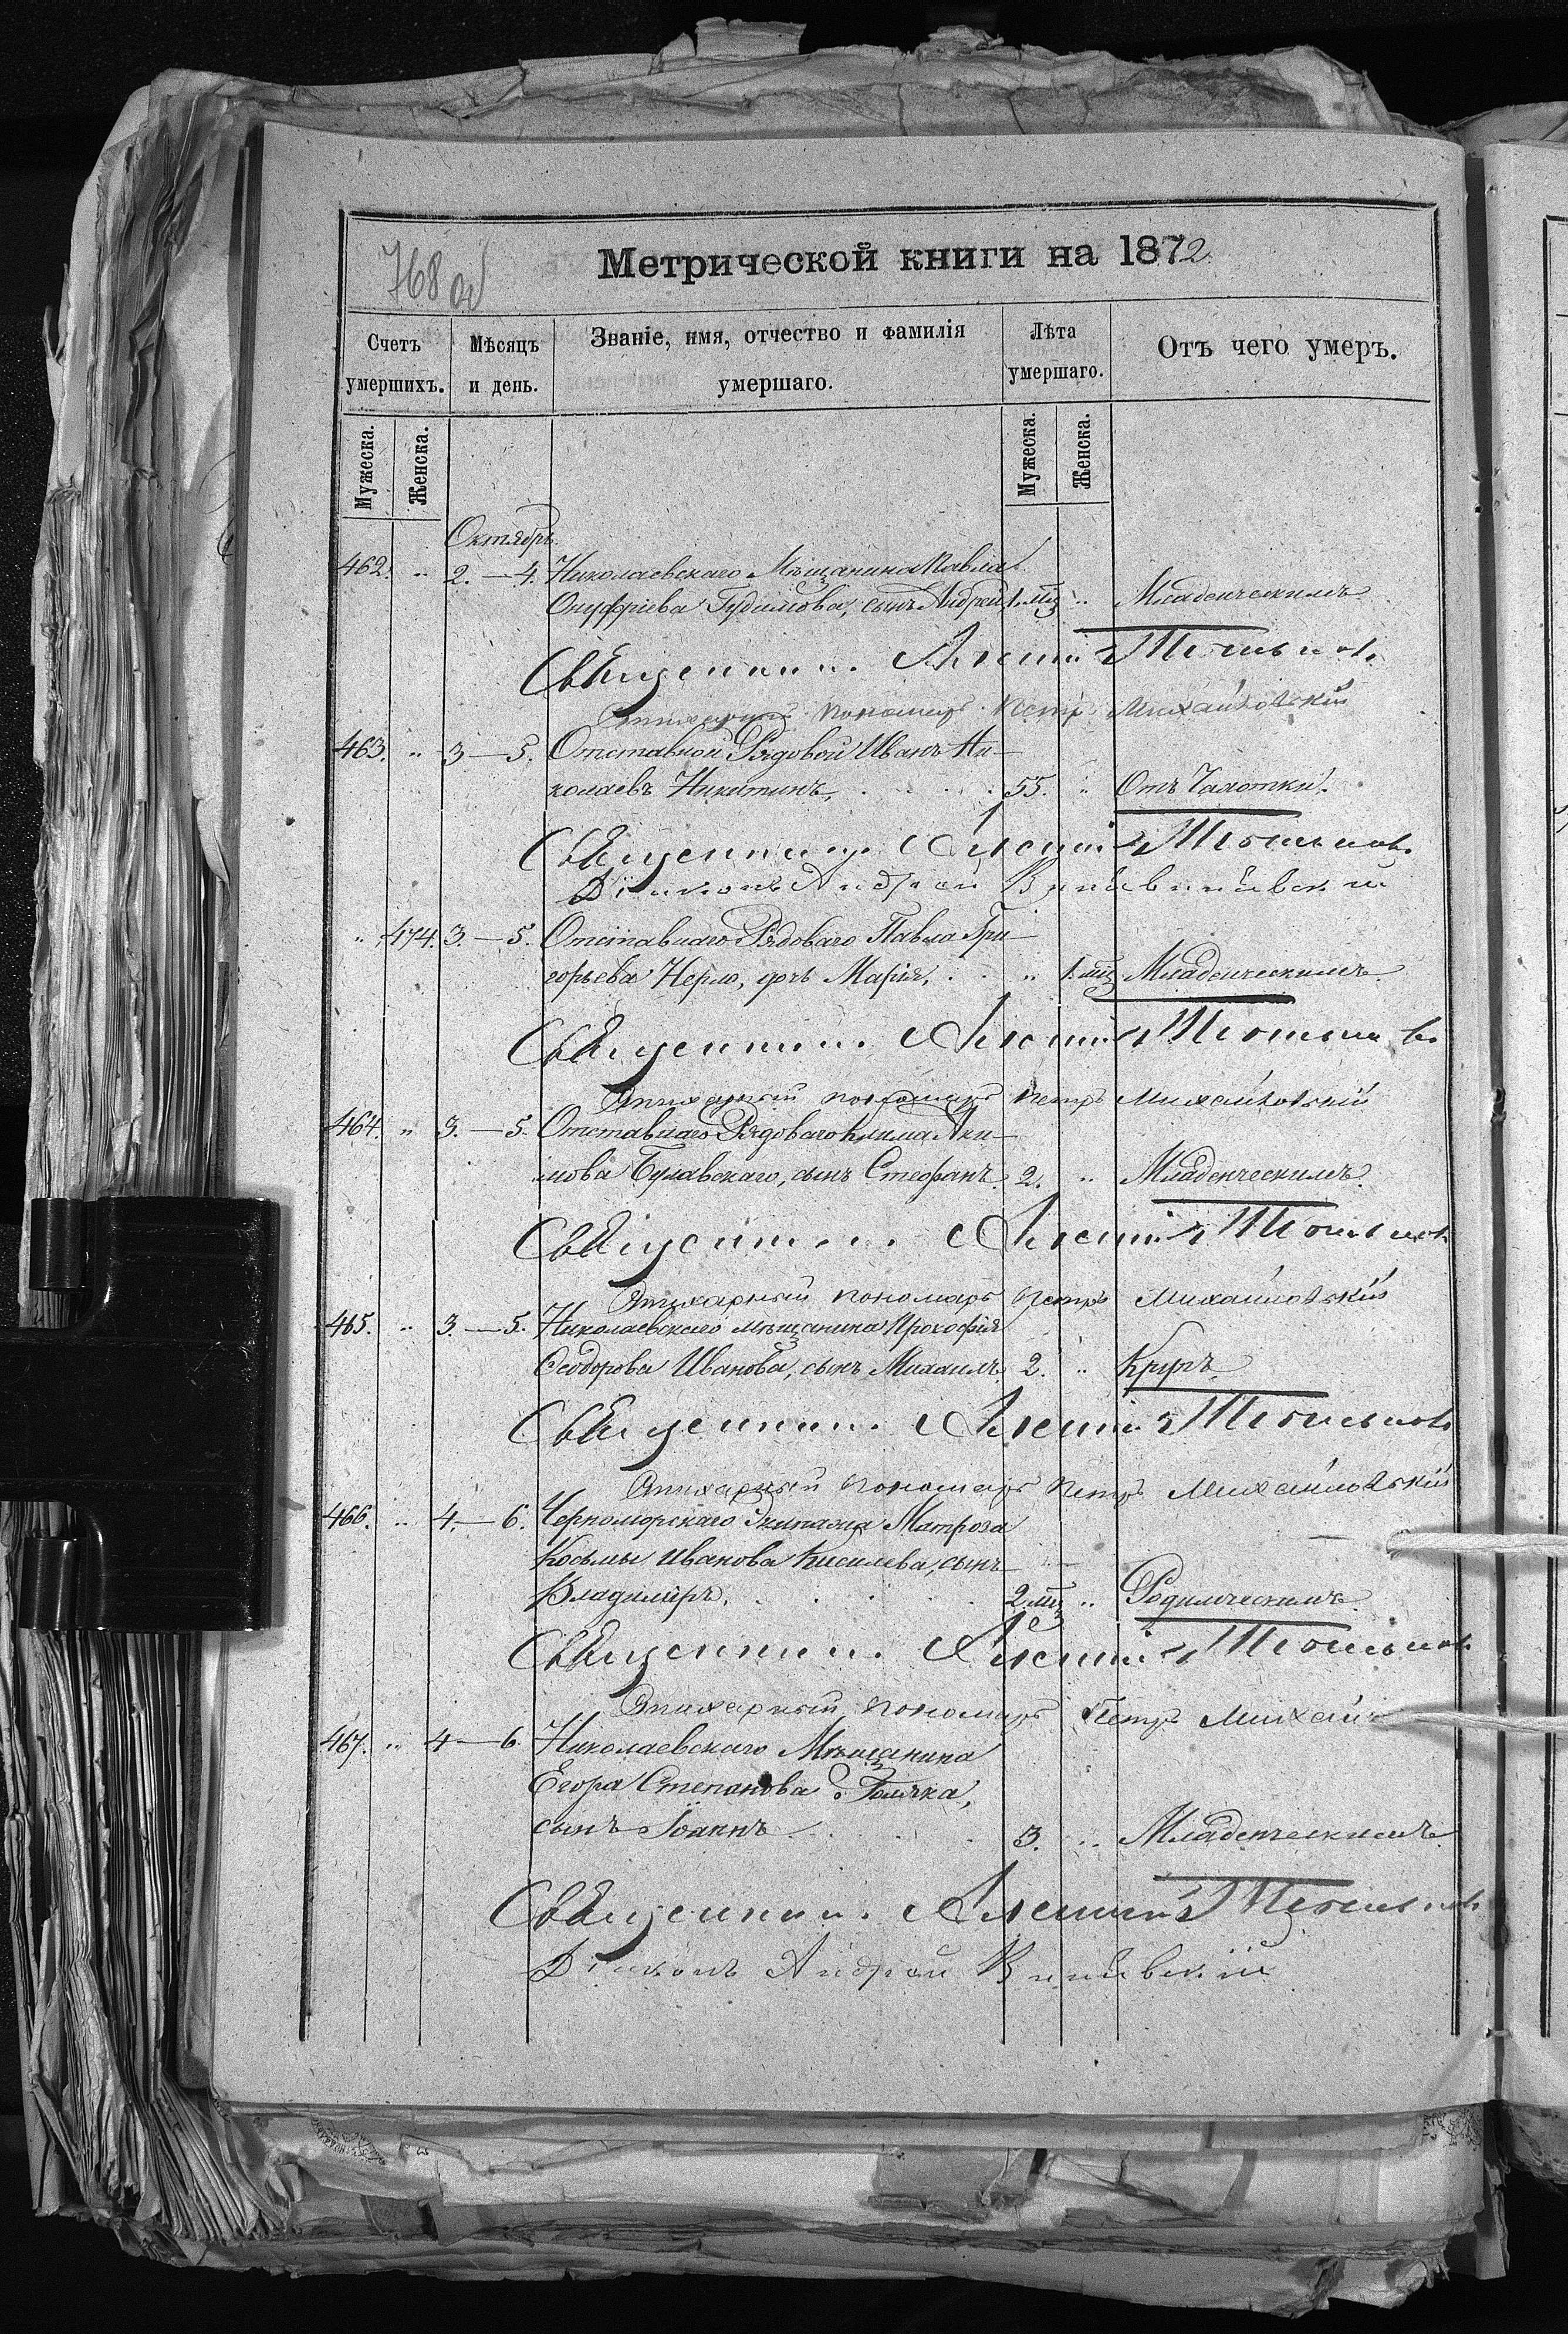 768 об
Метрической книги на 1872
Счетъ умершихъ.
Мѣсяцъ и день.
Званіе, имя, отчество и фамилія умершаго.
Лѣта умершаго.
Отъ чего умеръ.
Мужеска.
Женска.
Мужеска.
Женска.
Октябрь
462. " 2.—4. Николаевскаго Мѣщанина Павла
Онуфріева Гудимова, сынъ Андрей, 1. мц " Младенческимъ
Священникъ Алексій
Стихарный пономарь Петръ Михайловскій
463. " 3—5. Отставной Рядовой Иванъ Ни-
колаевъ Никитинъ, 55. " Отъ Чахотки.
Священникъ Алексій
Діаконъ Андрей
" 474. 3.—5. Отставнаго Рядоваго Павла Гри-
горьева Нерло, дчь Марія, " 1. мц Младенческимъ
Священникъ Алексій
Стихарный пономарь Петръ Михайловскій
464. " 3.—5. Отставнаго Рядоваго Клима Аки-
мова Булавскаго, сынъ Стефанъ. 2. " Младенческимъ.
Священникъ Алексій
Стихарный пономарь Петръ Михайловскій
465. " 3.—5. Николаевскаго мѣщанина Прокофія
Ѳеодорова Иванова, сынъ Михаилъ. 2. " Крупъ
Священникъ Алексій
Стихарный пономарь Петръ Михайловскій
466. " 4.—6. Черноморскаго Экипажа Матроза
Косьмы Иванова Киселева, сынъ
Владиміръ, 2. мц " Родимческимъ
Священникъ Алексій
Стихарный пономарь Петръ
467. " 4—6 Николаевскаго Мѣщанина
Егора Степанова
сынъ Іоаннъ 3. " Младенческимъ
Священникъ Алексій
Діаконъ Андрей